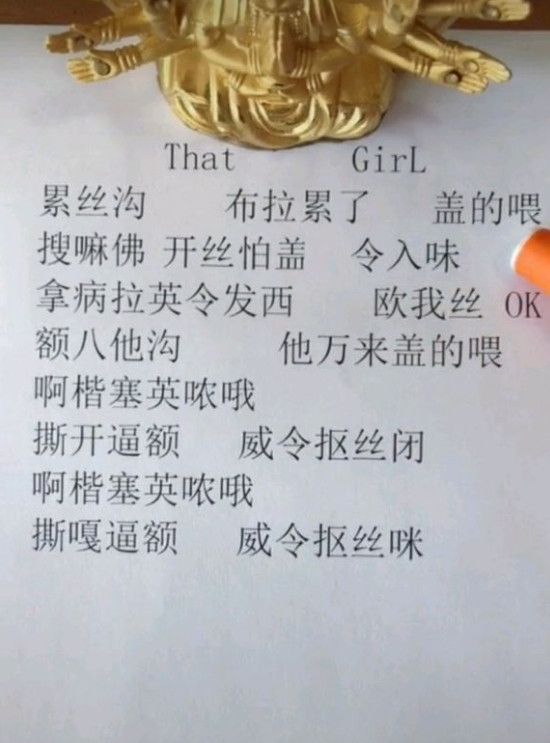 That GirL
累丝沟 布拉累了 盖的喂
搜嘛佛 开丝怕盖 令入味
拿病拉英令发西 欧我丝 OK
额八他沟 他万来盖的喂
啊楷塞英哝哦
撕开逼额 威令抠丝闭
啊楷塞英哝哦
撕嘎逼额 威令抠丝咪